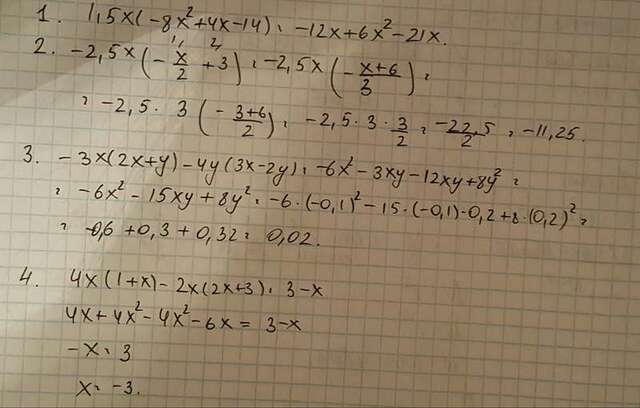 1. 1,5x(-8x²+4x-14) = -12x+6x²-21x.
2. -2,5x(-x/2+3) = -2,5x(-x+6/3) =
= -2,5 · 3(-3+6/2) = -2,5 · 3 · 3/2 = -22,5/2 = -11,25.
3. -3x(2x+y)-4y(3x-2y) = -6x²-3xy-12xy+8y² =
= -6x²-15xy+8y² = -6·(-0,1)²-15·(-0,1)·0,2+8·(0,2)² =
= -0,6+0,3+0,32 = 0,02.
4. 4x(1+x)-2x(2x+3) = 3-x
4x+4x²-4x²-6x = 3-x
-x = 3
x = -3.